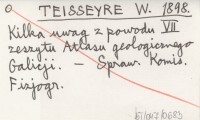 TEISSEYRE W. 1898.
Kilka uwag z powodu VII
zeszytu Atlasu geologicznego
Galicji. — Spraw. Komis.
Fizjogr.